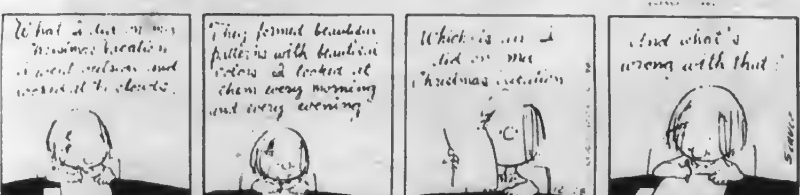 What I did on my
Christmas Vacation
I went outside and
looked at the clouds.
They formed beautiful
patterns with beautiful
colors I looked at
them every morning
and every evening
Which is all I
did on my
Christmas Vacation
And what's
wrong with that?
SCHULZ